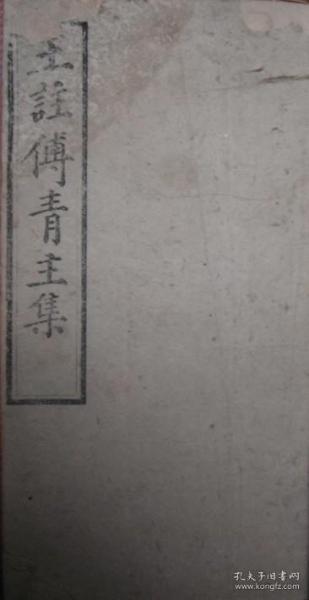 註傅青主集
孔夫子旧书网
www.kongfz.com